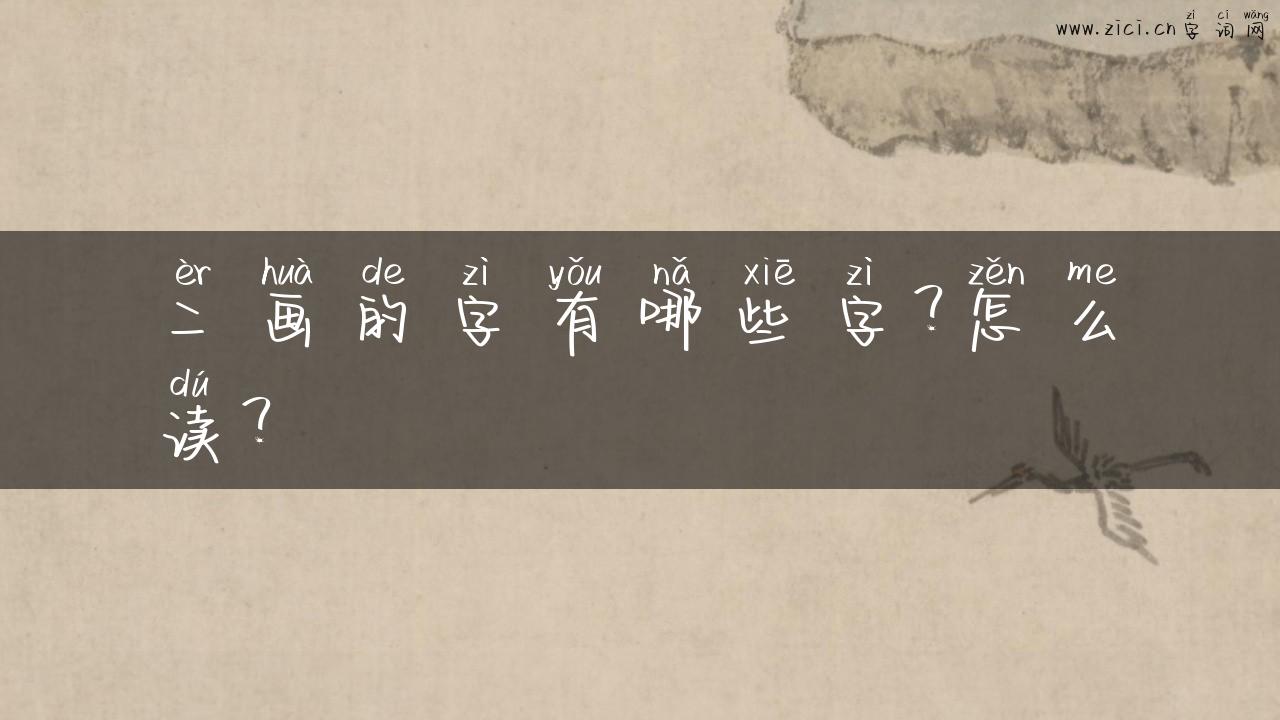 zì cí wǎng
www.zici.cn 字词网
èr huà de zì yǒu nǎ xiē zì zěn me
二画的字有哪些字？怎么
dú
读？